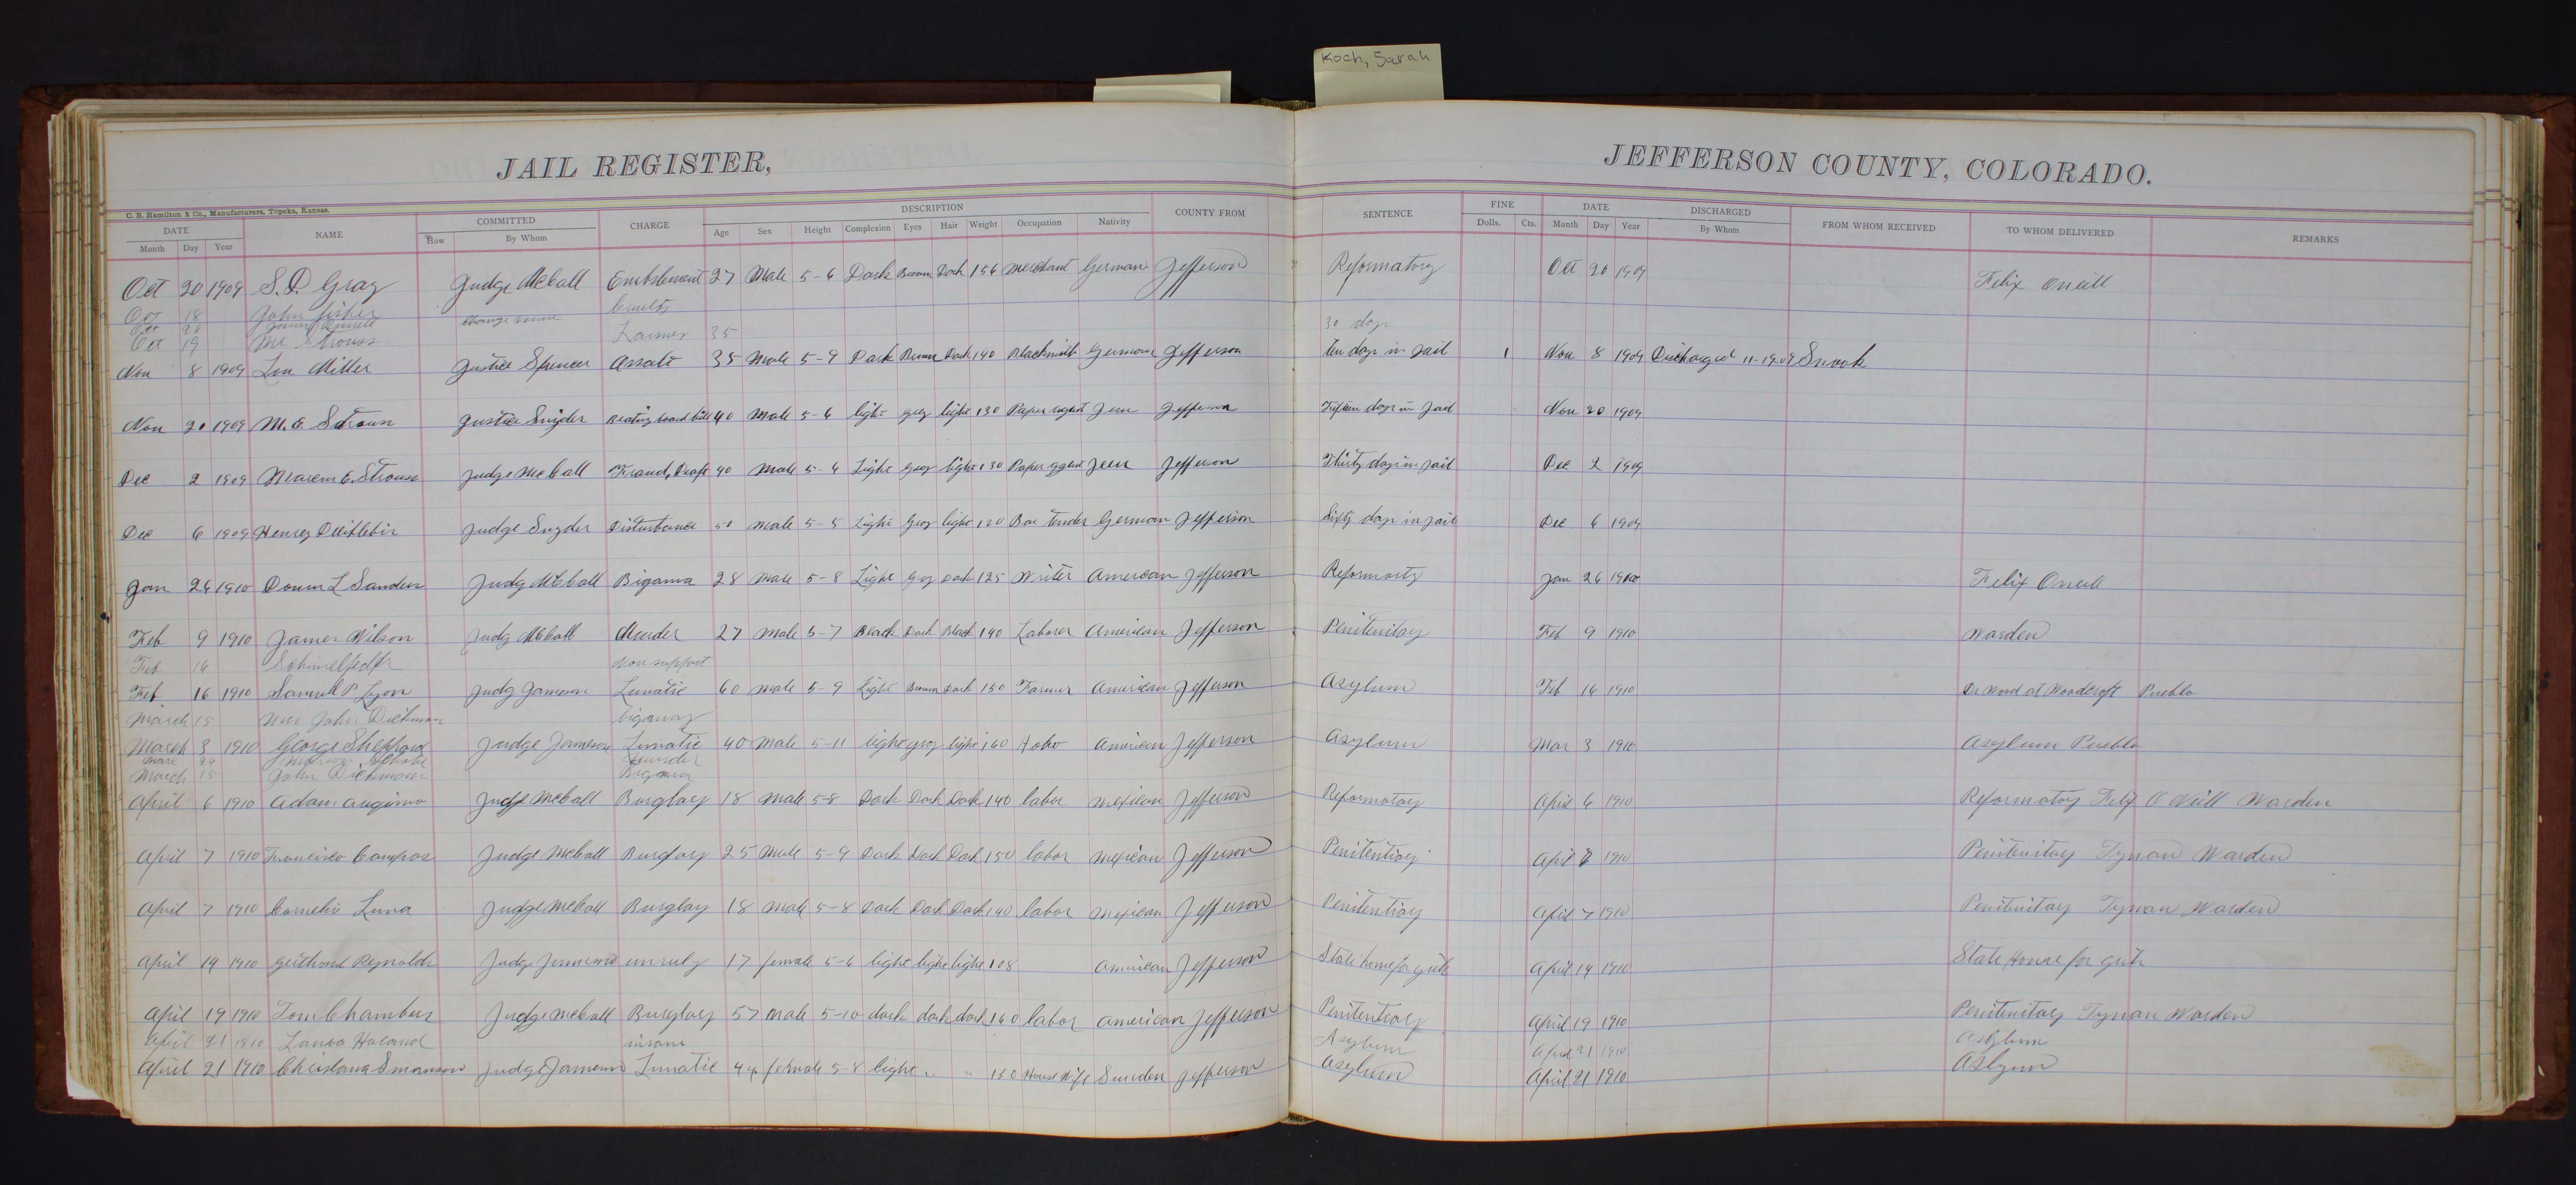 Koch, Sarah
JAIL REGISTER, JEFFERSON COUNTY, COLORADO.
C. R. Hamilton & Co., Manufacturers, Topeka, Kansas.
DATE NAME COMMITTED CHARGE DESCRIPTION COUNTY FROM SENTENCE FINE DATE DISCHARGED FROM WHOM RECEIVED TO WHOM DELIVERED REMARKS
Month Day Year How By Whom Age Sex Height Complexion Eyes Hair Weight Occupation Nativity Dolls. Cts. Month Day Year By Whom
Oct 20 1909 S. D. Gray Judge McCall 27 Male 5-6 Dark Brown Dark 156 German Jefferson Reformatory Oct 20 1909 Felix Oneill
Oct 18 John fisher Cruelty
Oct 28 change venue
Oct 19 Mr Strouss 35 30 days
Nov 8 1909 Lou Miller Justice Spencer 35 Male 5-9 Dark Brown Dark 140 German Jefferson ten days in Jail 1 Nov 8 1909 Discharged 11-19-09 Snook
Nov 20 1909 M. E. Justice Snyder Beating board bill 40 Male 5-6 light grey light 130 Paper Jew Jefferson Fifteen days in Jail Nov 20 1909
Dec 2 1909 E. Strouss Judge McCall Fraud, 40 Male 5-6 Light grey light 130 Paper Jew Jefferson Thirty days in Jail Dec 2 1909
Dec 6 1909 Henry Judge Snyder Disturbance 50 Male 5-5 Light Grey light 120 Bar tender German Jefferson Sixty days in Jail Dec 6 1909
Jan 26 1910 L Sanders Judg McCall Bigama 28 Male 5-8 Light Gry Dark 125 Writer American Jefferson Jan 26 Felix Oneill
Feb 9 1910 James Wilson Judg McCall Murder 27 Male 5-7 Black Dark Black 140 Laborer American Jefferson Penitenitay Feb 9 1910 Warden
Feb 16 Non support
Feb 16 1910 Samuel P. Lyon Judg Jameson Lunatic 60 Male 5-9 Light Brown Dark 150 Farmer American Jefferson Asylum Feb 16 1910 Dr Wood at Woodcroft Pueblo
March 15 Mrs John Dickman bigamay
March 3 1910 George Sheppard Judge Jameson Lunatic 40 Male 5-11 light grey light 160 Hobo American Jefferson Asylum Mar 3 1910 Asylum Pueblo
Marc 24 murder
March 15 John Dickman
April 6 1910 Adam Judge McCall Burglay 18 Male 5-8 Dark Dark Dark 140 labor Mexican Jefferson Reformatory April 6 1910 Reformatory Felix O Neill Warden
April 7 1910 Francisco Campos Judge McCall Burglary 25 Male 5-9 Dark Dark Dark 150 labor Mexican Jefferson Penitentiay April 1910 Penitenitary Tynan Warden
April 7 1910 Luna Judge McCall Burglay 18 Male 5-8 Dark Dark Dark 140 labor Mexican Jefferson Penitentiay April 7 1910 Penitenitary Tynan Warden
April 14 1910 Reynolds Judge unruly 17 female 5-6 light light light 108 American Jefferson April 14 1910 State Home for
April 19 1910 Tom Chambers Judge McCall Burglary 57 Male 5-10 dark dark dark 160 labor American Jefferson Penitentiay April 19 1910 Penitenitary Tynan Warden
April 21 1910 Laura insane Asylum April 21 1910 Asylum
April 21 1910 Swanson Judge Lunatic 44 female 5-8 light " " 130 House Wife Sweden Jefferson Asylum April 21 1910